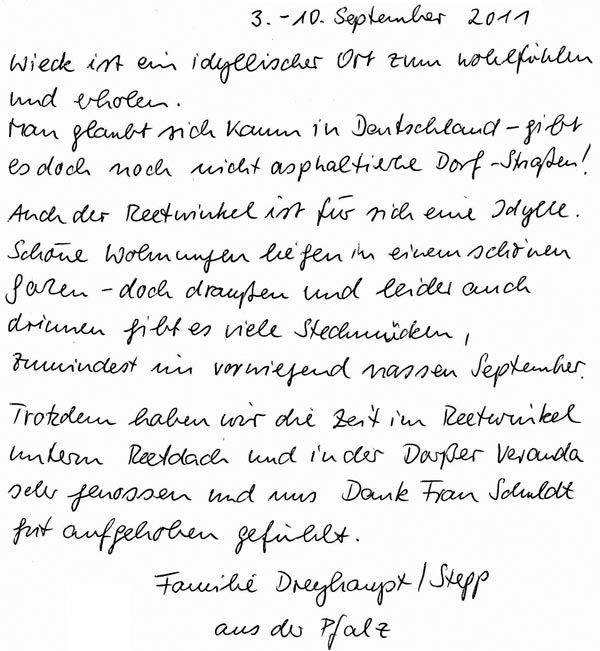 3. - 10. September 2011
Wieck ist ein idyllischer Ort zum wohlfühlen
und erholen.
Man glaubt sich kaum in Deutschland - gibt
es doch noch nicht asphaltierte Dorf-Straßen!
Auch der Reetwinkel ist für sich eine Idylle.
Schöne Wohnungen liegen in einem schönen
Garten - doch draußen und leider auch
drinnen gibt es viele Stechmücken,
zumindest im vorwiegend nassen September.
Trotzdem haben wir die Zeit im Reetwinkel
unterm Reetdach und in der Darßer Veranda
sehr genossen und uns Dank Frau Schuldt
gut aufgehoben gefühlt.
Familie Dreyhaupt / Stepp
aus der Pfalz